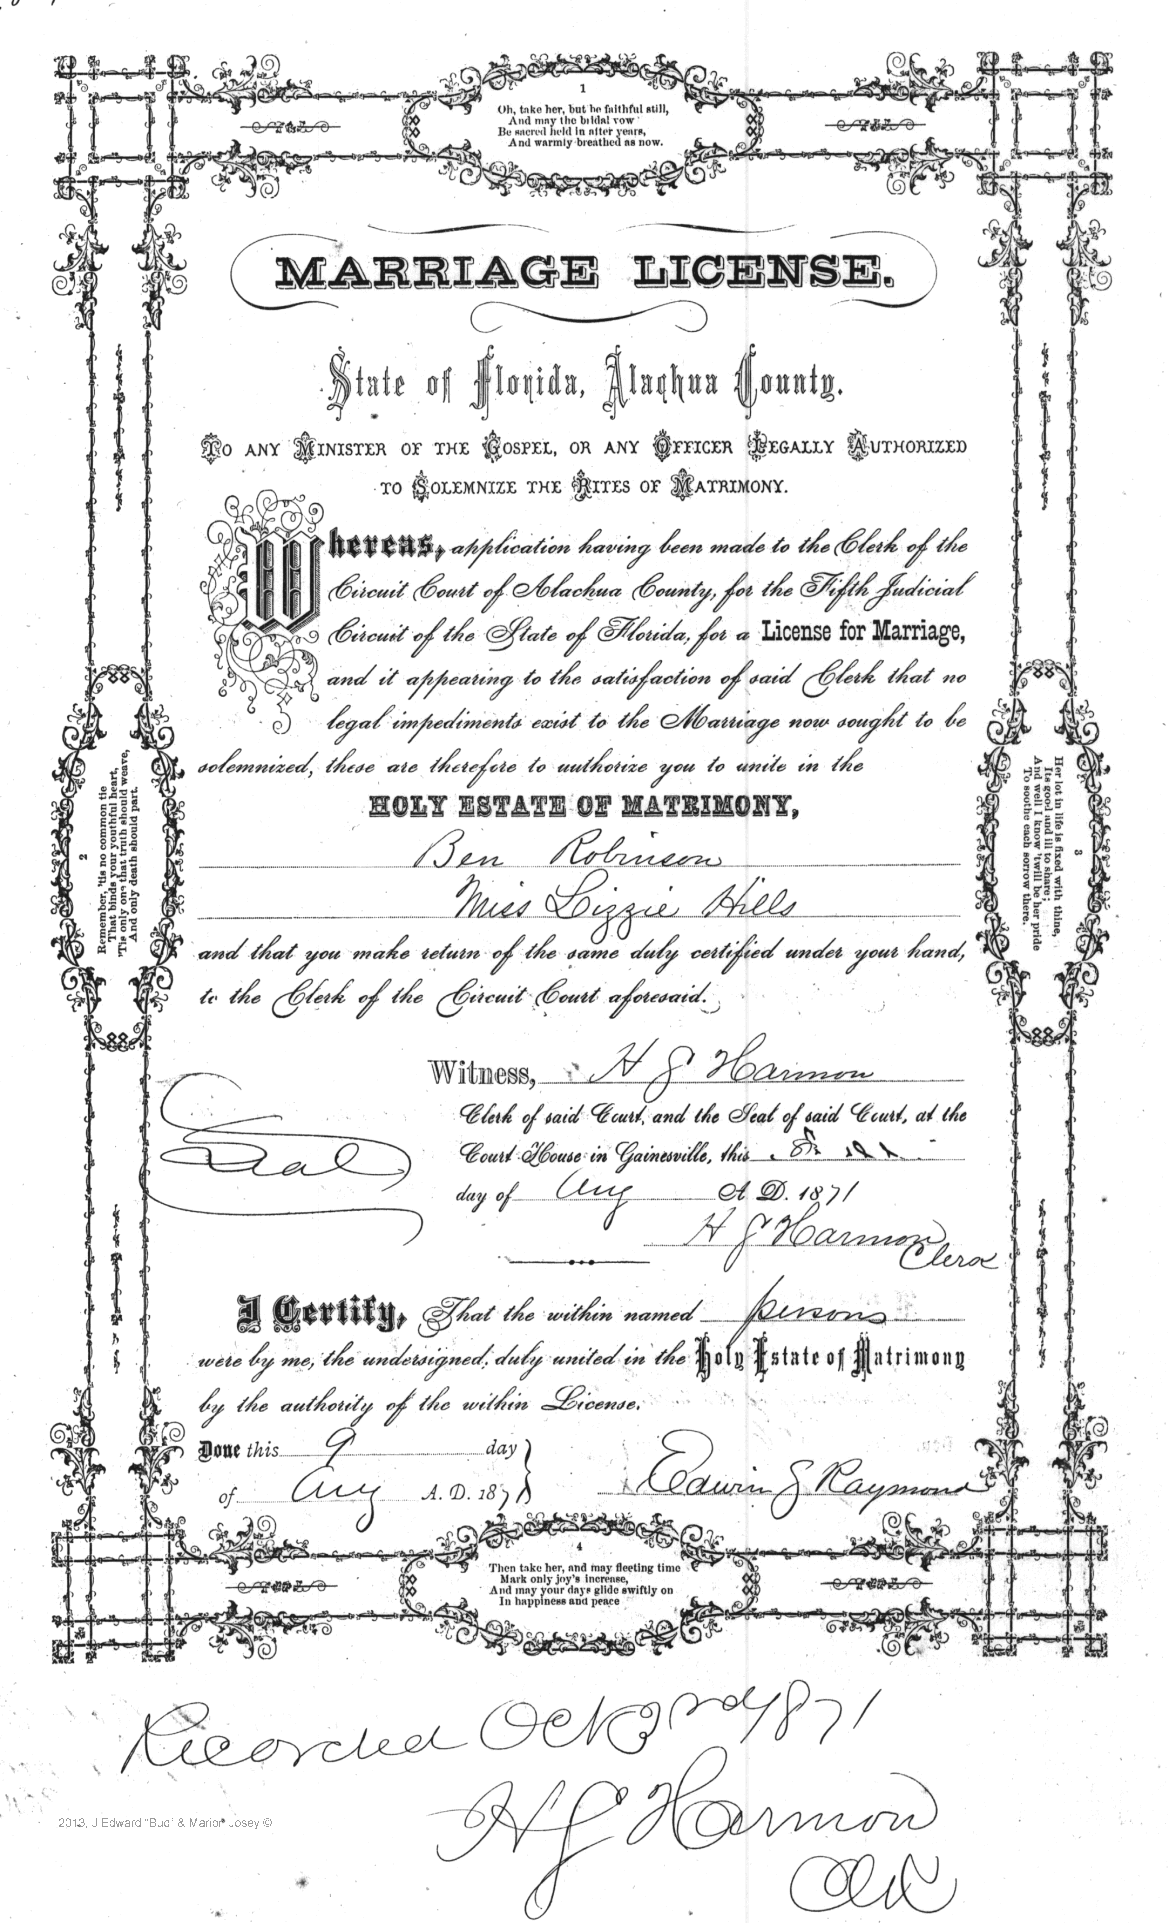 1
Oh, take her, but be faithful still,
And may the bridal vow
Be sacred held in after years,
And warmly breathed as now.
MARRIAGE LICENSE.
State of Florida, Alachua County.
TO ANY MINISTER OF THE GOSPEL, OR ANY OFFICER LEGALLY AUTHORIZED
TO SOLEMNIZE THE RITES OF MATRIMONY.
Whereas, application having been made to the Clerk of the
Circuit Court of Alachua County, for the Fifth Judicial
Circuit of the State of Florida, for a License for Marriage,
and it appearing to the satisfaction of said Clerk that no
legal impediments exist to the Marriage now sought to be
solemnized, these are therefore to authorize you to unite in the
HOLY ESTATE OF MATRIMONY,
Ben Robinson
Miss Lizzie Hills
and that you make return of the same duly certified under your hand,
to the Clerk of the Circuit Court aforesaid.
2
Remember, 'tis no common tie
That binds your youthful heart,
'Tis only one that truth should weave,
And only death should part.
3
Her lot in life is fixed with thine,
Its good and ill to share;
And well I know 'twill be her pride
To soothe each sorrow there.
Witness, H J Harmon
Clerk of said Court, and the Seal of said Court, at the
Court House in Gainesville, this 8th
day of Aug A. D. 1871
Seal
H J Harmon
Clerk
I Certify, That the within named persons
were by me, the undersigned, duly united in the Holy Estate of Matrimony
by the authority of the within License.
Done this 9 day
of Aug A. D. 1871
Edwin J Raymond
4
Then take her, and may fleeting time
Mark only joy's increase,
And may your days glide swiftly on
In happiness and peace
Recorded Oct 3rd 1871
H J Harmon
Clk
2013, J Edward "Bud" & Marion Josey ©